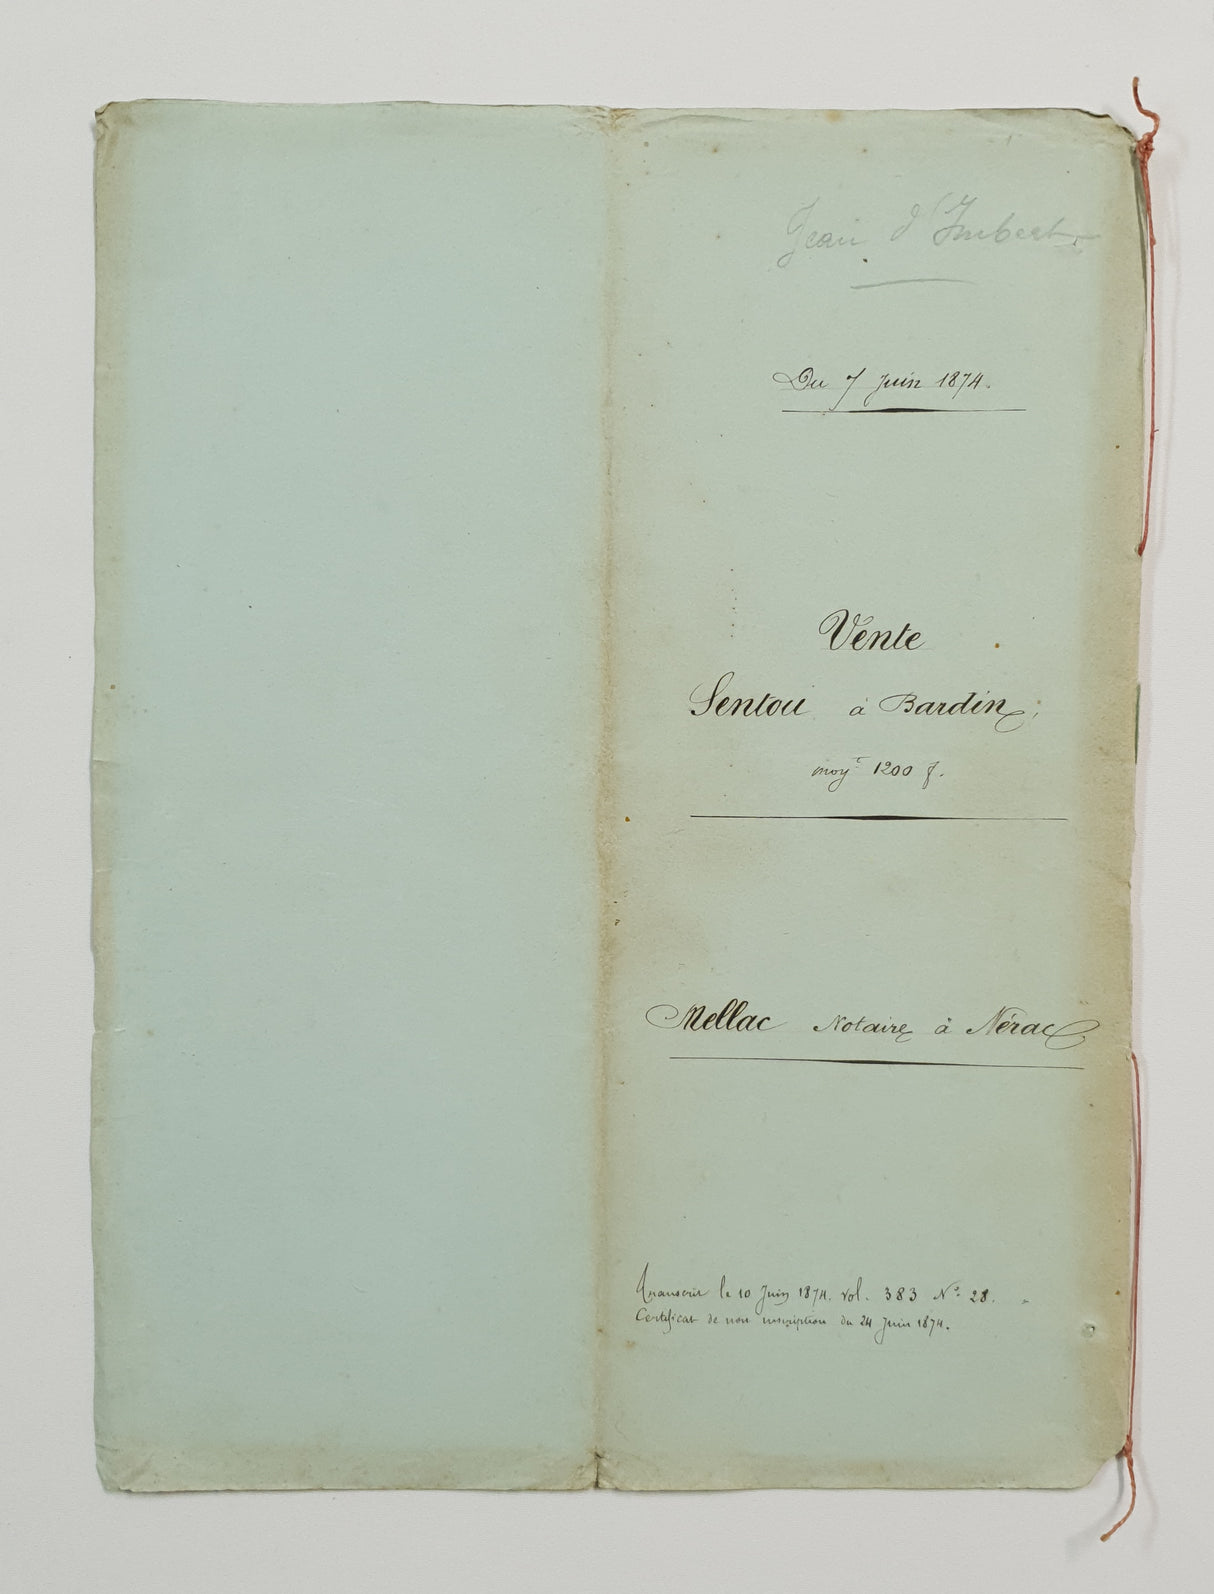 Jean d'Imbert
Du 7 Juin 1874.
Vente
Sentou à Bardin,
moyt 1200 f.
Mellac Notaire à Nérac
Transcrit le 10 Juin 1874. vol. 383 No 28.
Certificat de non inscription du 24 Juin 1874.